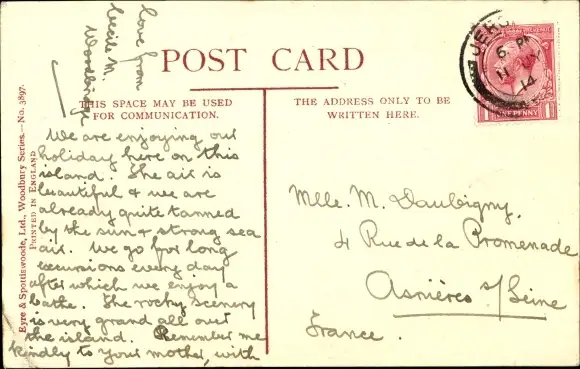 POST CARD
THIS SPACE MAY BE USED
FOR COMMUNICATION.
THE ADDRESS ONLY TO BE
WRITTEN HERE.
We are enjoying our
holiday here on this
island. The air is
beautiful & we are
already quite tanned
by the sun & strong sea
air. We go for long
excursions every day
after which we enjoy a
bathe. The rocky scenery
is very grand all over
the island. Remember me
kindly to your mother, with
love from
Cecile M.
Woodbridge
Mlle. M. Daubigny,
4 Rue de la Promenade
Asnières s/Seine
France.
Eyre & Spottiswoode, Ltd., Woodbury Series.—No. 3897.
PRINTED IN ENGLAND
6. PM
14
1 ONE PENNY 1